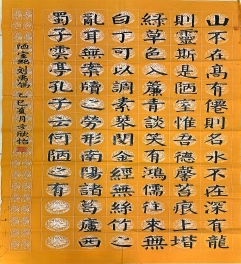 山不在高有僊則名水不在深有龍
則靈斯是陋室惟吾德馨苔痕上堦
綠草色入簾青談笑有鴻儒往來無
白丁可以調素琴閱金經無絲竹之
亂耳無案牘之勞形南陽諸葛廬西
蜀子雲亭孔子云何陋之有
陋室銘 劉禹錫 乙巳夏月